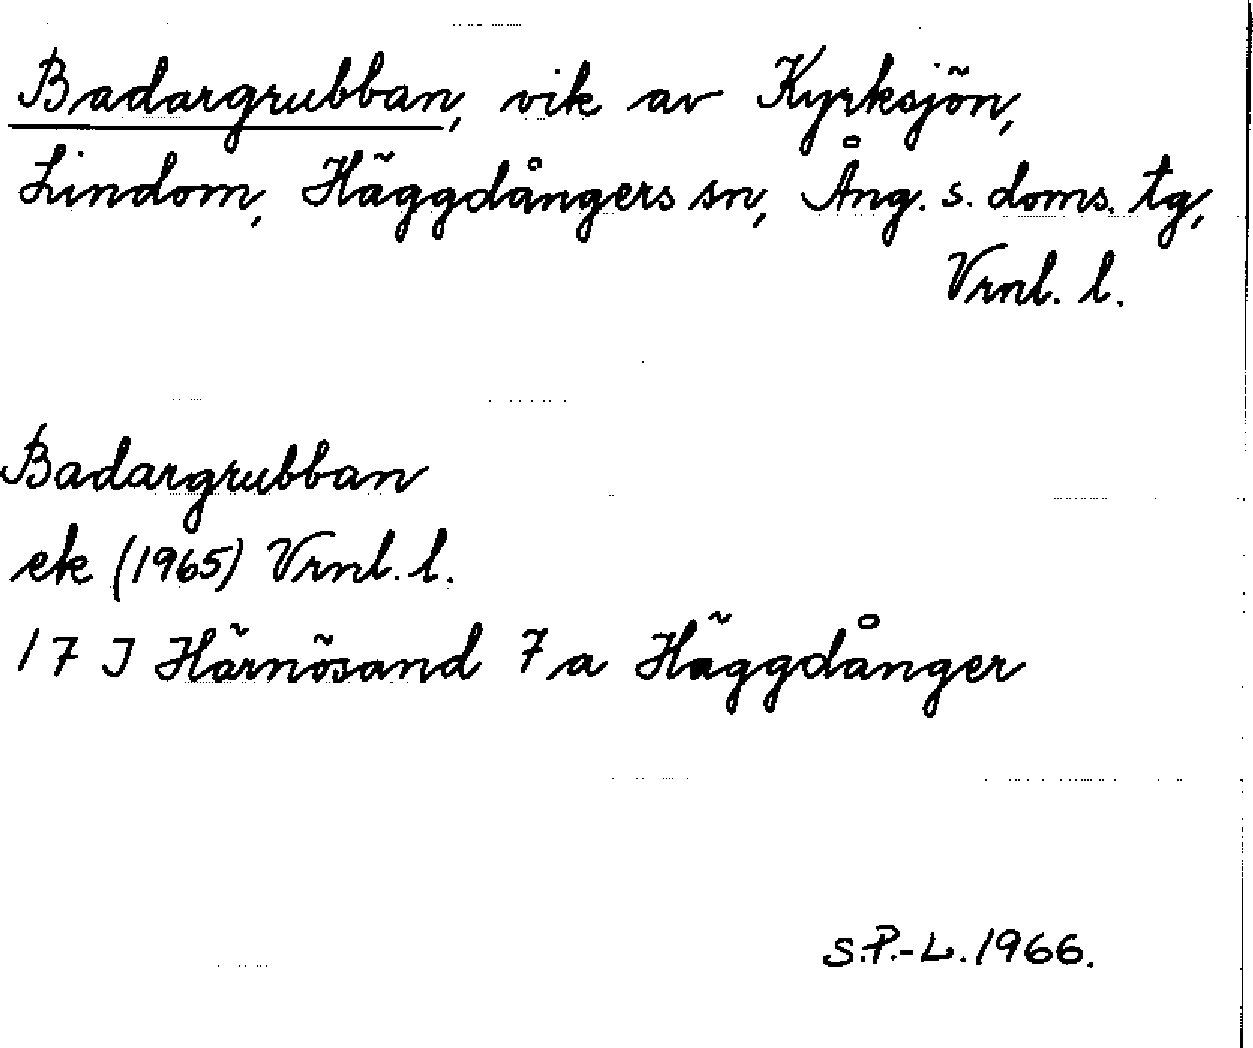 Badargrubban, vik av Kyrksjön,
Lindom, Häggdångers sn, Ång. s. doms. tg,
Vrnl. l.
Badargrubban
ek (1965) Vrnl. l.
17 J Härnösand 7 a Häggdånger
S.P.-L. 1966.